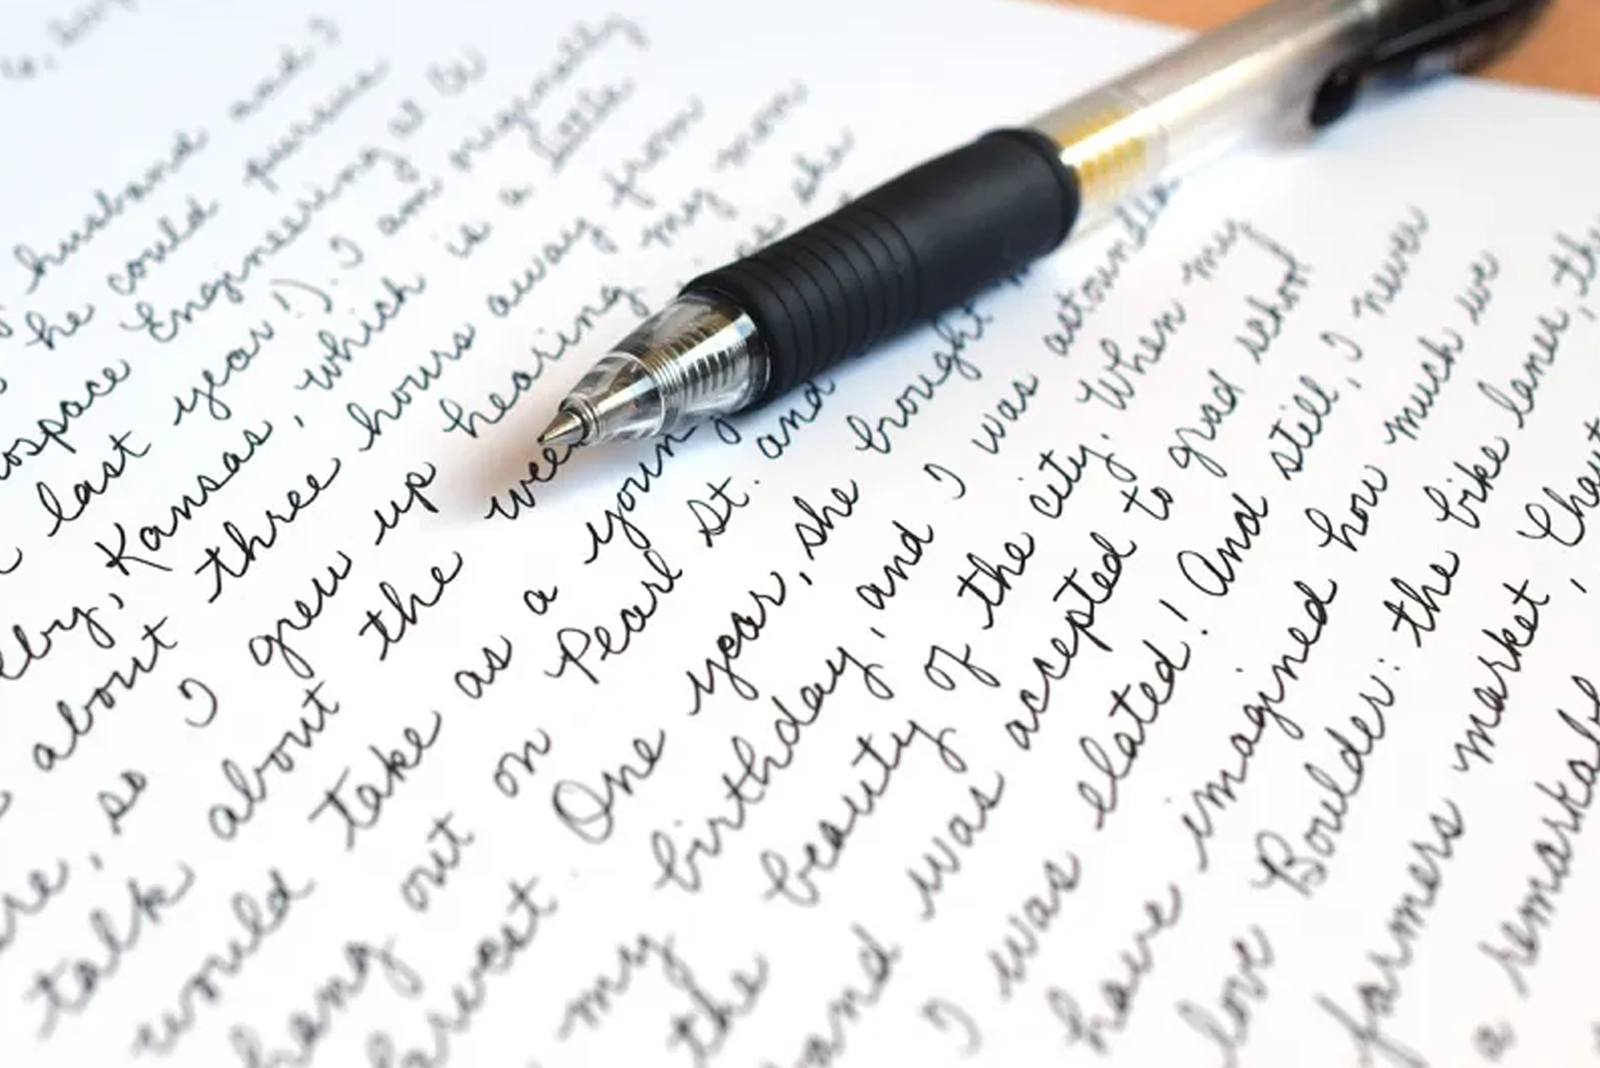 husband and I
he could pursue
Engineering at CU
last year!). I am originally
Kansas, which is a little
about three hours away from
so I grew up hearing my mom
talk about the she
would take as a young
hang out on Pearl St. and
One year, she brought
my birthday, and I was
the beauty of the city. When my
and was accepted to grad school
I was elated! And still, I never
have imagined how much we
love Boulder: the bike lanes, the
farmers market,
a